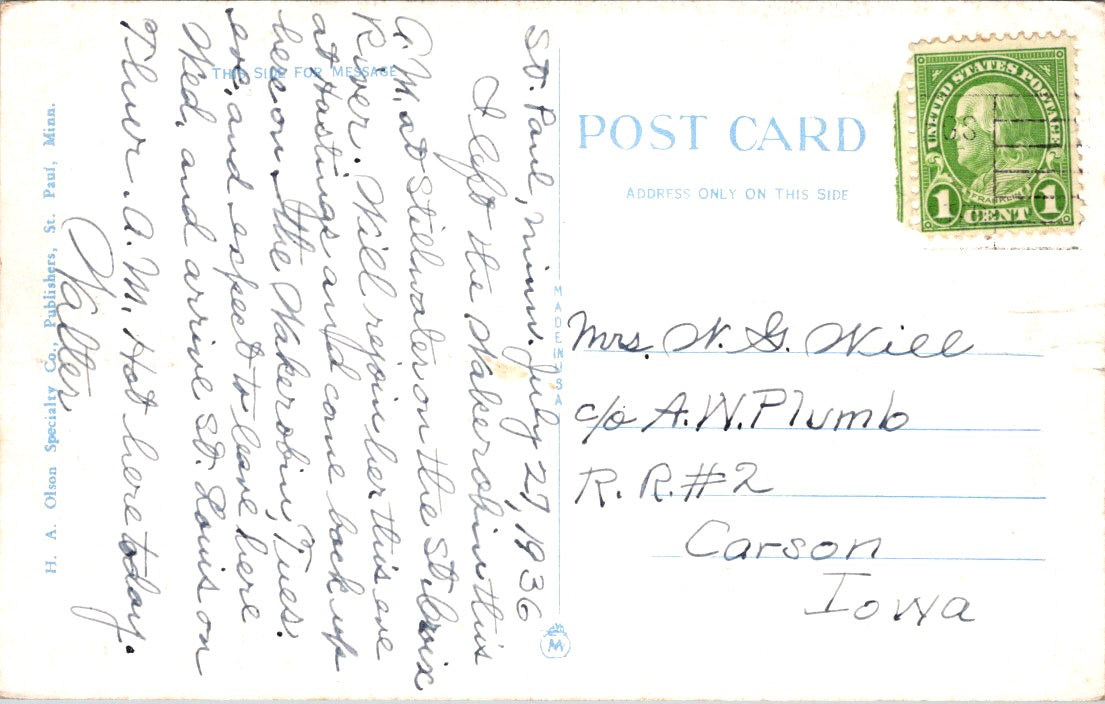 St. Paul, Minn. July 27, 1936
I left the Wakerobin this
A.M. at Stillwater on the St Croix
River. Will rejoin her this eve
at Hastings and come back up
here on the Wakerobin, Tues.
eve, and expect to leave here
Wed, and arrive St. Louis on
Thur. A.M. Hot here today.
Walter
THIS SIDE FOR MESSAGE
H. A. Olson Specialty Co., Publishers, St. Paul, Minn.
MADE IN USA
POST CARD
ADDRESS ONLY ON THIS SIDE
UNITED STATES POSTAGE
FRANKLIN
1 CENT 1
Mrs. W. G. Will
c/o A.W. Plumb
R. R. #2
Carson
Iowa